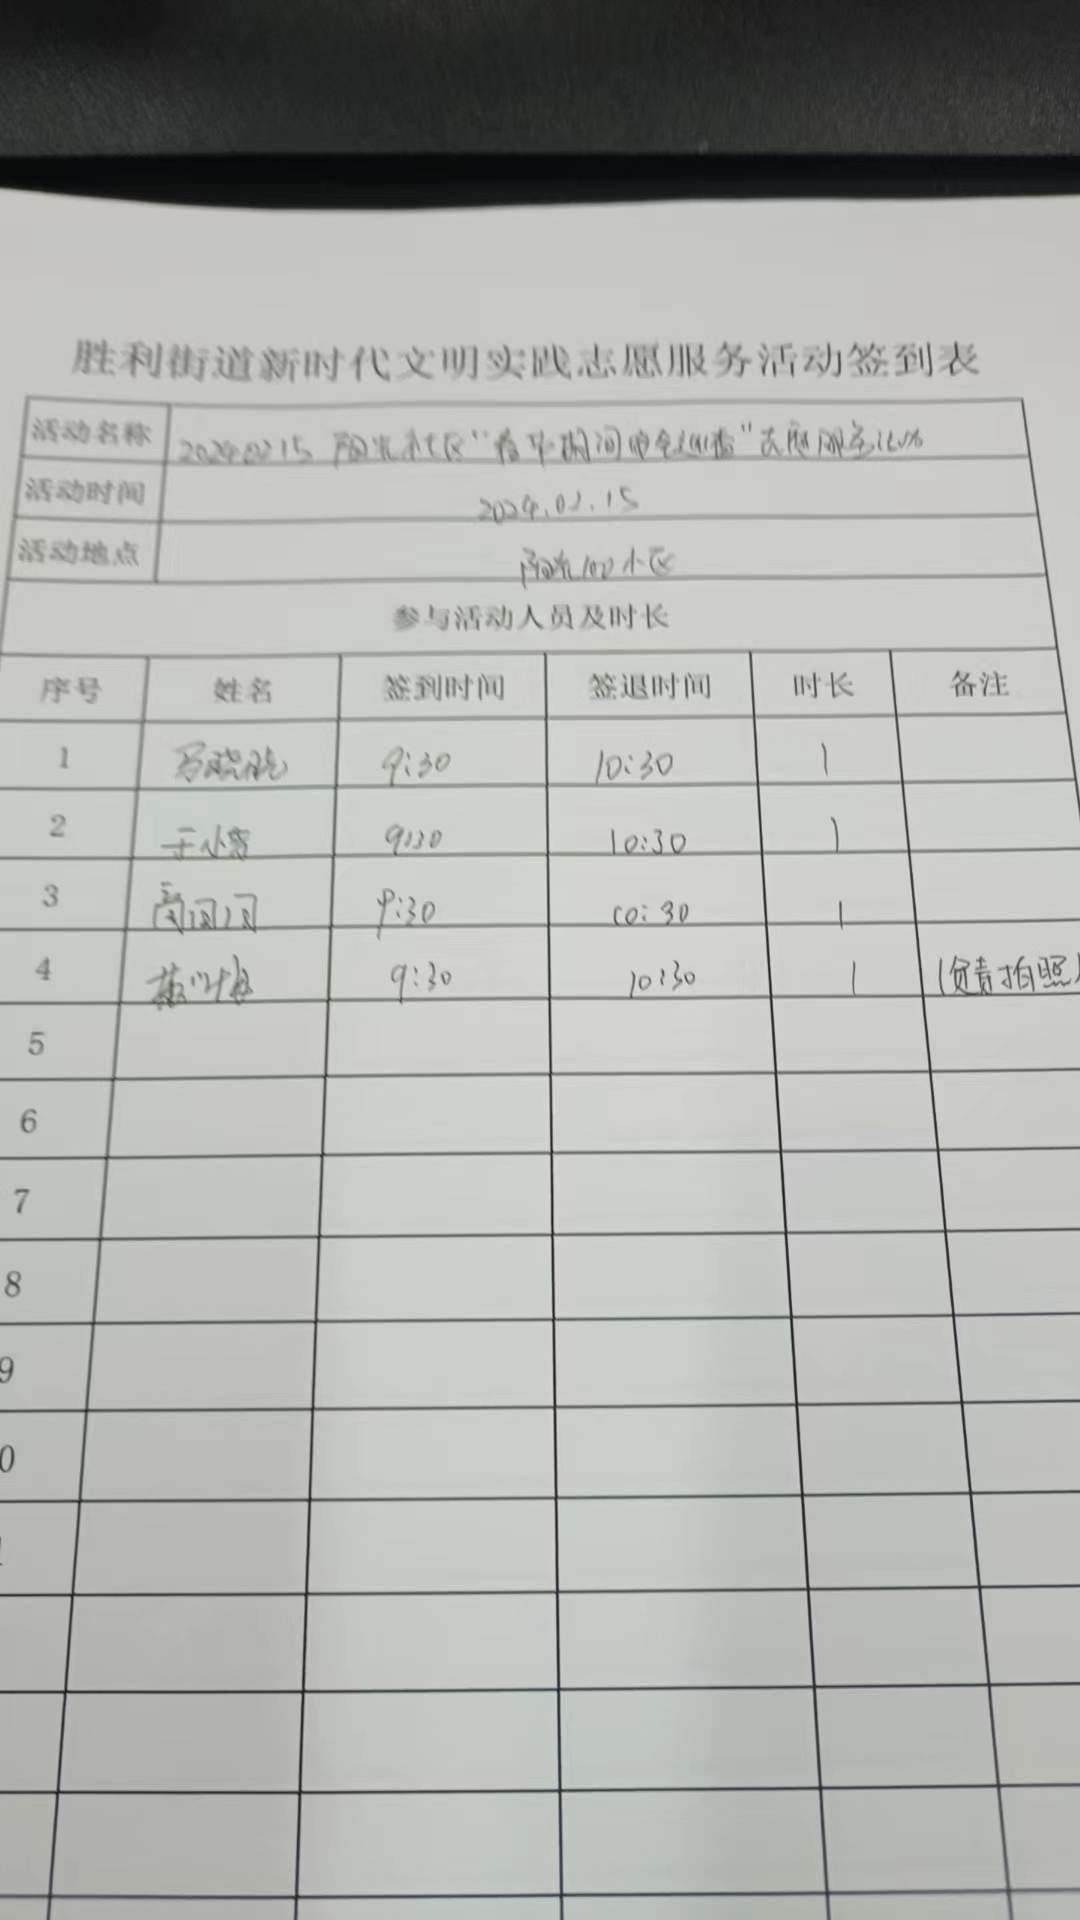 胜利街道新时代文明实践志愿服务活动签到表
活动名称 20240215 阳光社区“ ”志愿服务活动
活动时间 2024.02.15
活动地点 阳光100小区
参与活动人员及时长
序号 姓名 签到时间 签退时间 时长 备注
1 9:30 10:30 1
2 于小 9:30 10:30 1
3 9:30 10:30 1
4 9:30 10:30 1 (负责拍照)
5
6
7
8
9
0